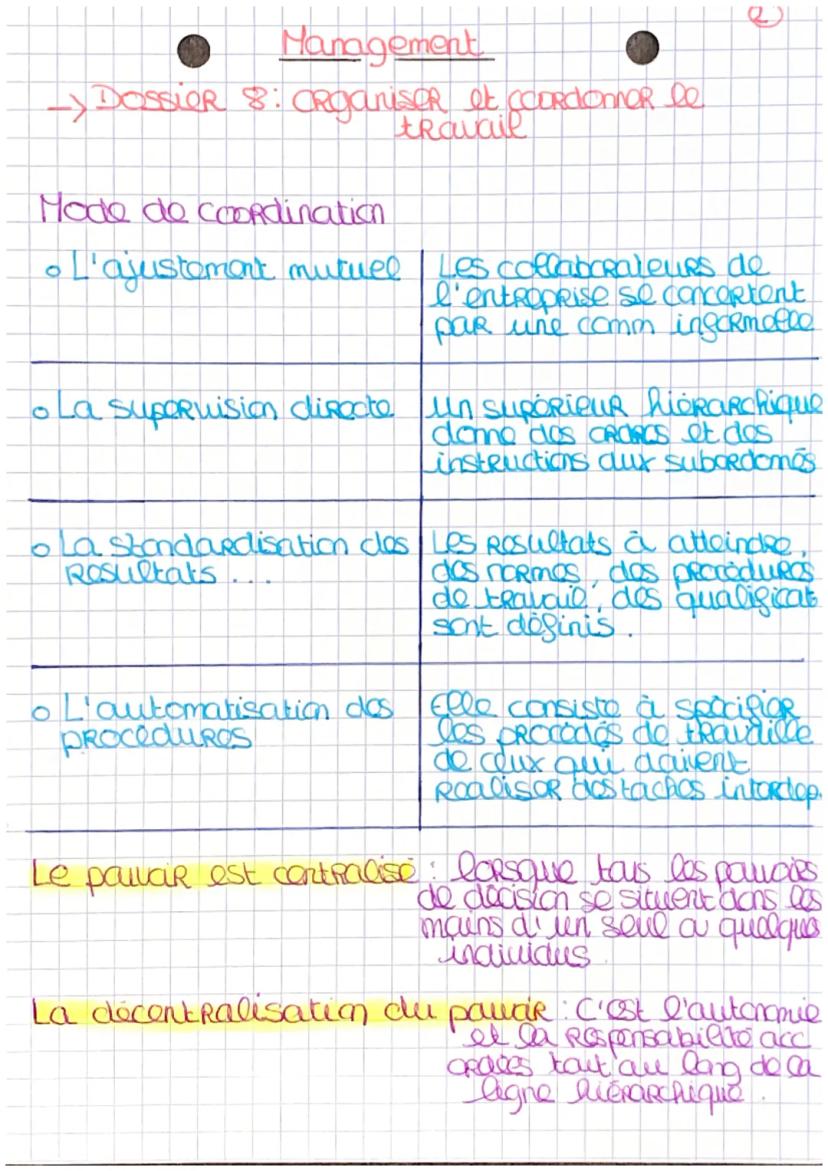 2
Management
-> Dossier 8 : organiser et coordonner le
travail
Mode de coordination
o L'ajustement mutuel
Les collaborateurs de
l'entreprise se concertent
par une comm informelle
o La supervision directe
Un supérieur hiérarchique
donne des ordres et des
instructions aux subordonnés
o La standardisation des
résultats ...
Les résultats à atteindre,
des normes, des procédures
de travail, des qualificat
sont définis.
o L'automatisation des
procédures
Elle consiste à spécifier
les procédés de travaille
de ceux qui doivent
realiser des taches interdep.
Le pouvoir est centralisé : lorsque tous les pouvoirs
de décision se situent dans les
mains d'un seul ou quelques
individus
La décentralisation du pouvoir : C'est l'autonomie
et la responsabilité acc
ordées tout au long de la
ligne hiérarchique.